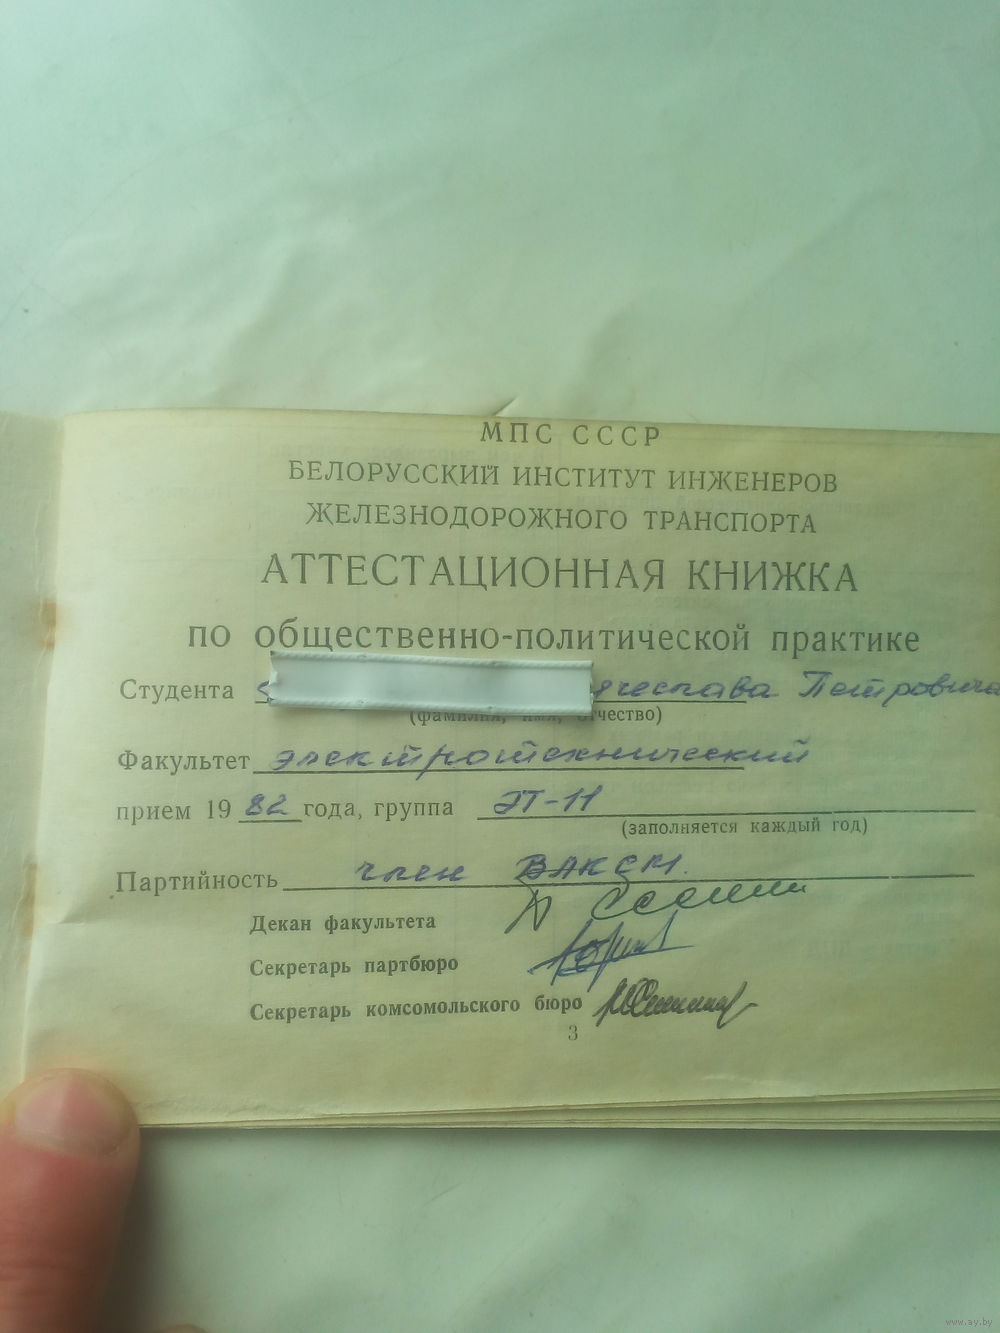 МПС СССР
БЕЛОРУССКИЙ ИНСТИТУТ ИНЖЕНЕРОВ
ЖЕЛЕЗНОДОРОЖНОГО ТРАНСПОРТА
АТТЕСТАЦИОННАЯ КНИЖКА
по общественно-политической практике
Студента ячеслава Петровича
(фамилия, имя, отчество)
Факультет электротехнический
прием 1982 года, группа ЭТ-11
(заполняется каждый год)
Партийность член ВЛКСМ.
Декан факультета
Секретарь партбюро
Секретарь комсомольского бюро
3
www.ay.by